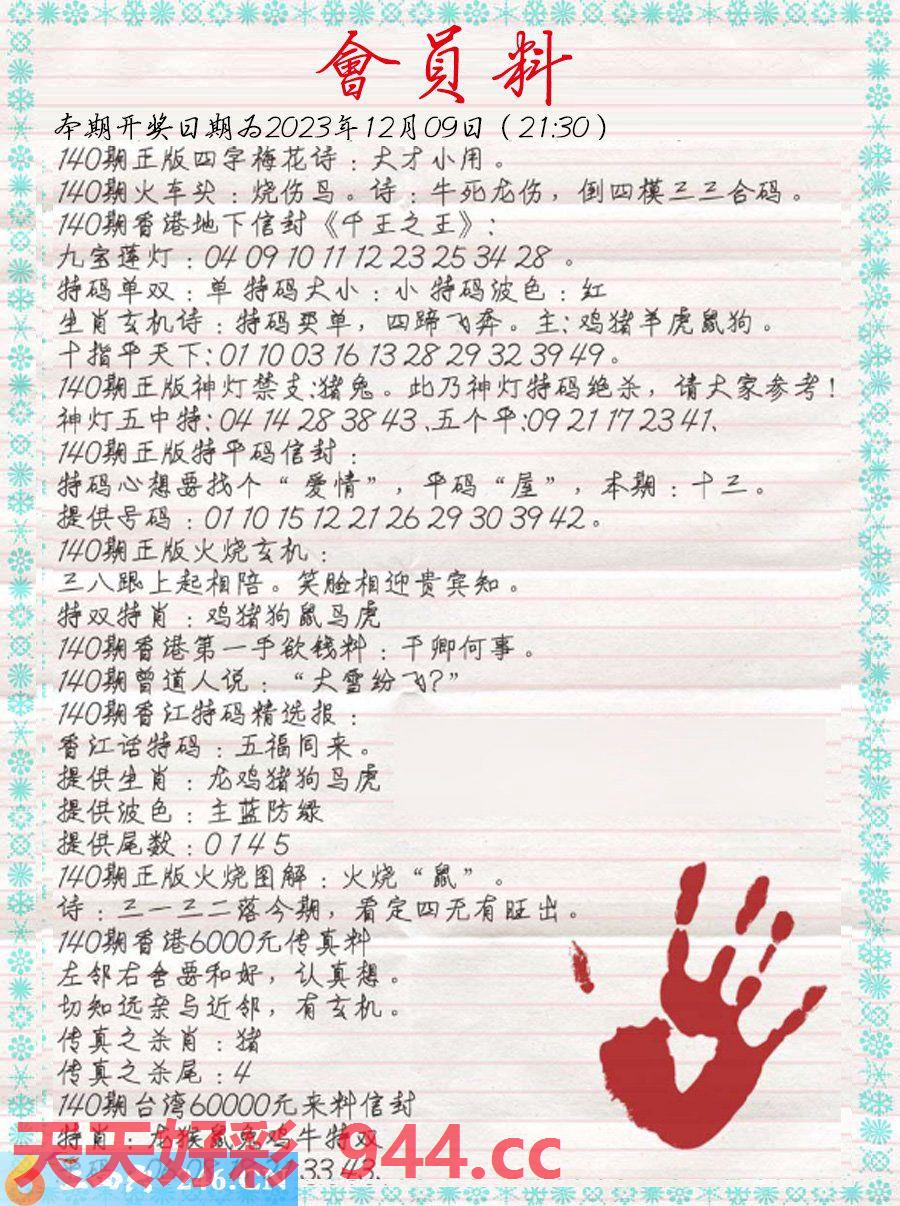 會員料
本期开奖日期为2023年12月09日（21:30）
140期正版四字梅花诗：大才小用。
140期火车头：烧伤鸟。诗：牛死龙伤，倒四模三三合码。
140期香港地下信封《千王之王》：
九宝莲灯：04 09 10 11 12 23 25 34 28 。
特码单双：单 特码大小：小 特码波色：红
生肖玄机诗：特码买单，四蹄飞奔。主：鸡猪羊虎鼠狗。
十指平天下：01 10 03 16 13 28 29 32 39 49。
140期正版神灯禁支：猪兔。此乃神灯特码绝杀，请大家参考！
神灯五中特：04 14 28 38 43 、五个平：09 21 17 23 41、
140期正版特平码信封：
特码心想要找个“爱情”，平码“屋”，本期：十三。
提供号码：01 10 15 12 21 26 29 30 39 42。
140期正版火烧玄机：
三八跟上起相陪。笑脸相迎贵宾知。
特双特肖：鸡猪狗鼠马虎
140期香港第一手欲钱料：干卿何事。
140期曾道人说：“大雪纷飞？”
140期香江特码精选报：
香江话特码：五福同来。
提供生肖：龙鸡猪狗马虎
提供波色：主蓝防绿
提供尾数：0 1 4 5
140期正版火烧图解：火烧“鼠”。
诗：三一三二落今期，看定四无有旺出。
140期香港6000元传真料
左邻右舍要和好，认真想。
切知远亲与近邻，有玄机。
传真之杀肖：猪
传真之杀尾：4
140期台湾60000元来料信封
特肖：龙猴鼠兔鸡牛特双
33 43、
天天好彩 944.cc